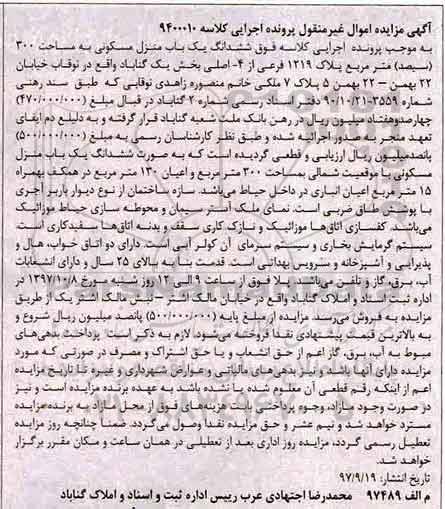 آگهی مزایده اموال غیرمنقول پرونده اجرایی کلاسه ۹۴۰۰۰۱۰
به موجب پرونده اجرایی کلاسه فوق ششدانگ یک باب منزل مسکونی به مساحت ۳۰۰
(سیصد) متر مربع پلاک ۱۲۱۹ فرعی از ۴- اصلی بخش یک گناباد واقع در نوقاب خیابان
۲۲ بهمن – ۲۲ بهمن ۵ پلاک ۷ ملکی خانم منصوره زاهدی نوقابی که طبق سند رهنی
شماره ۳۵۵۹-۹۰/۱۰/۲۱ دفتر اسناد رسمی شماره ۲ گناباد در قبال مبلغ (۴۷۰/۰۰۰/۰۰۰)
چهارصدوهفتاد میلیون ریال در رهن بانک ملت شعبه گناباد قرار گرفته و به دلیل عدم ایفای
تعهد منجر به صدور اجرائیه شده و طبق نظر کارشناسان رسمی به مبلغ (۵۰۰/۰۰۰/۰۰۰)
پانصدمیلیون ریال ارزیابی و قطعی گردیده است که به صورت ششدانگ یک باب منزل
مسکونی با موقعیت شمالی بمساحت ۳۰۰ متر مربع و اعیان ۱۳۰ متر مربع در همکف بهمراه
۱۵ متر مربع اعیان انباری در داخل حیاط می‌باشد. سازه ساختمان از نوع دیوار باربر آجری
با پوشش طاق ضربی است. نمای ملک آستر سیمان و محوطه سازی حیاط موزائیک
می‌باشد. کفسازی اتاق‌ها موزائیک و نازک کاری سقف و بدنه اتاق‌ها سفیدکاری است.
سیستم گرمایش بخاری و سیستم سرمای آن کولر آبی است. دارای دو اتاق خواب، هال و
پذیرایی و آشپزخانه و سرویس بهداشتی است. قدمت بنا به بالای ۲۵ سال و دارای انشعابات
آب، برق، گاز و تلفن می‌باشد. پلا فوق از ساعت ۹ الی ۱۲ روز شنبه مورخ ۱۳۹۷/۱۰/۸ در
اداره ثبت اسناد و املاک گناباد واقع در خیابان مالک اشتر – نبش مالک اشتر یک از طریق
مزایده به فروش می‌رسد. مزایده از مبلغ پایه (۵۰۰/۰۰۰/۰۰۰) پانصد میلیون ریال شروع و
به بالاترین قیمت پیشنهادی نقدا فروخته می‌شود. لازم به ذکر است: پرداخت بدهی‌های
مربوط به آب، برق، گاز اعم از حق انشعاب و یا حق اشتراک و مصرف در صورتی که مورد
مزایده دارای آنها باشد و نیز بدهی‌های مالیاتی و عوارض شهرداری و غیره تا تاریخ مزایده
اعم از اینکه رقم قطعی آن معلوم شده یا نشده باشد به عهده برنده مزایده است و نیز
در صورت وجود مازاد، وجوه پرداختی بابت هزینه‌های فوق از محل مازاد به برنده‌مزایده
مسترد خواهد شد و نیم عشر و حق مزایده نقدا وصول می‌گردد. ضمناً چنانچه روز مزایده
تعطیل رسمی گردد، مزایده روز اداری بعد از تعطیلی در همان ساعت و مکان مقرر برگزار
خواهد شد.
تاریخ انتشار: ۹۷/۹/۱۹
م الف ۹۷۴۸۹ محمدرضا اجتهادی عرب رییس اداره ثبت و اسناد و املاک گناباد